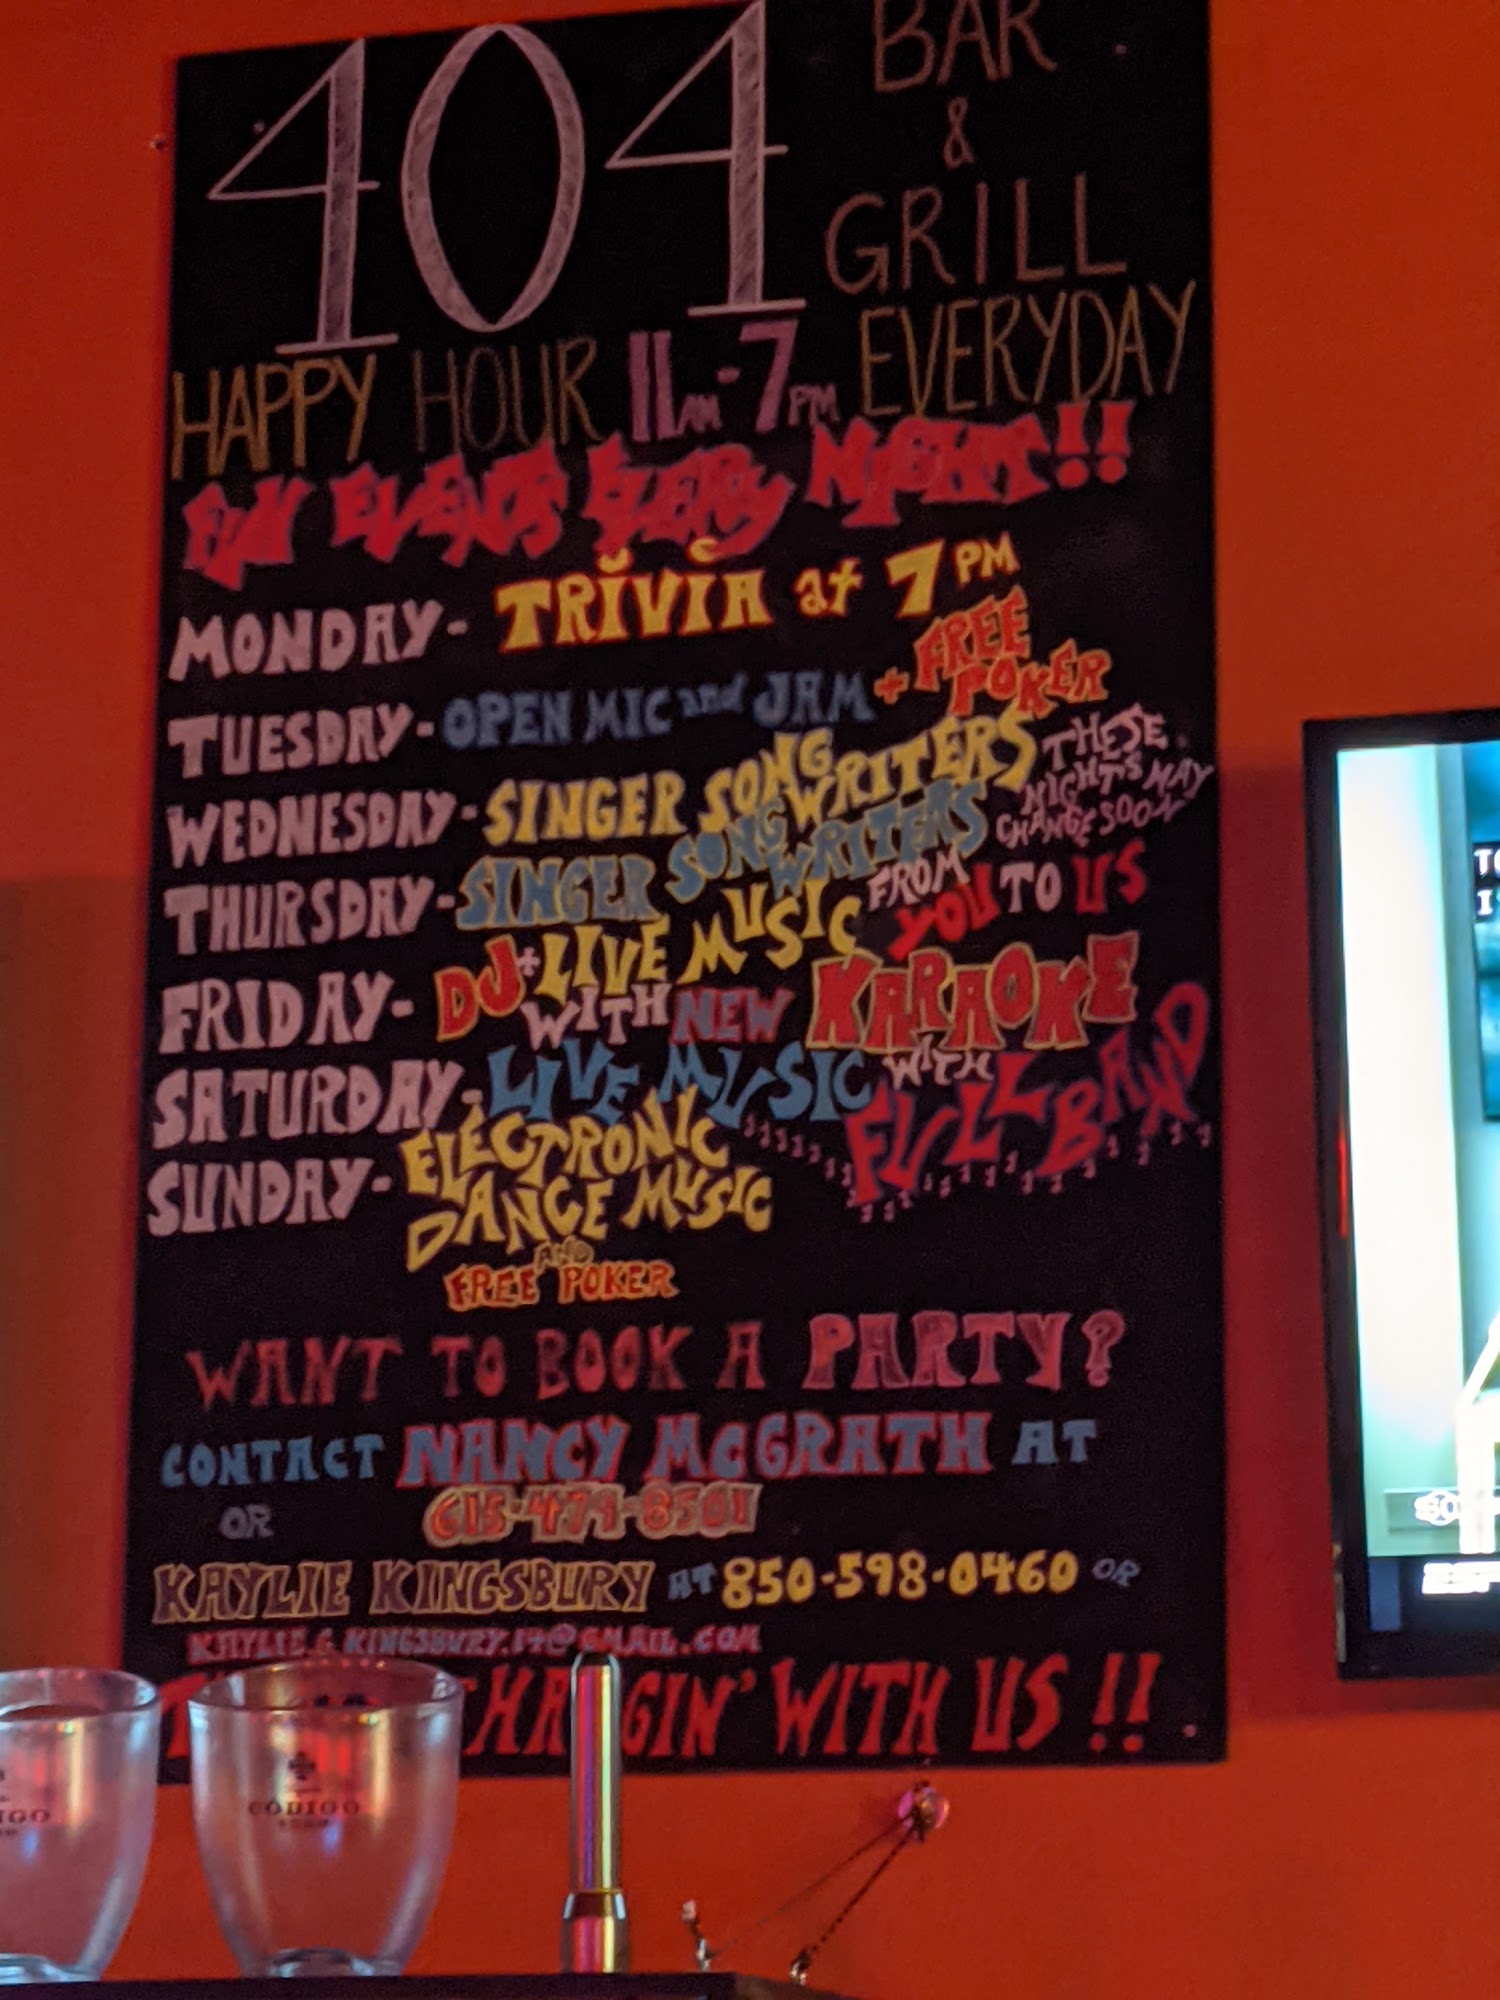 404 BAR
&
GRILL
HAPPY HOUR 11AM-7PM EVERYDAY
FUN EVENTS EVERY NIGHT!!
MONDAY- TRIVIA at 7PM
TUESDAY- OPEN MIC and JAM + FREE POKER
WEDNESDAY- SINGER SONG WRITERS
THURSDAY- SINGER SONG WRITERS
THESE NIGHTS MAY CHANGE SOON
FROM YOU TO US
FRIDAY- DJ + LIVE MUSIC
WITH NEW KARAOKE
SATURDAY- LIVE MUSIC WITH FULL BAND
SUNDAY- ELECTRONIC
DANCE MUSIC
AND
FREE POKER
WANT TO BOOK A PARTY?
CONTACT NANCY McGRATH AT
OR 615-479-8501
KAYLIE KINGSBURY AT 850-598-0460 OR
KAYLIE.G.KINGSBURY.14@GMAIL.COM
HANGIN' WITH US!!
CÓDIGO